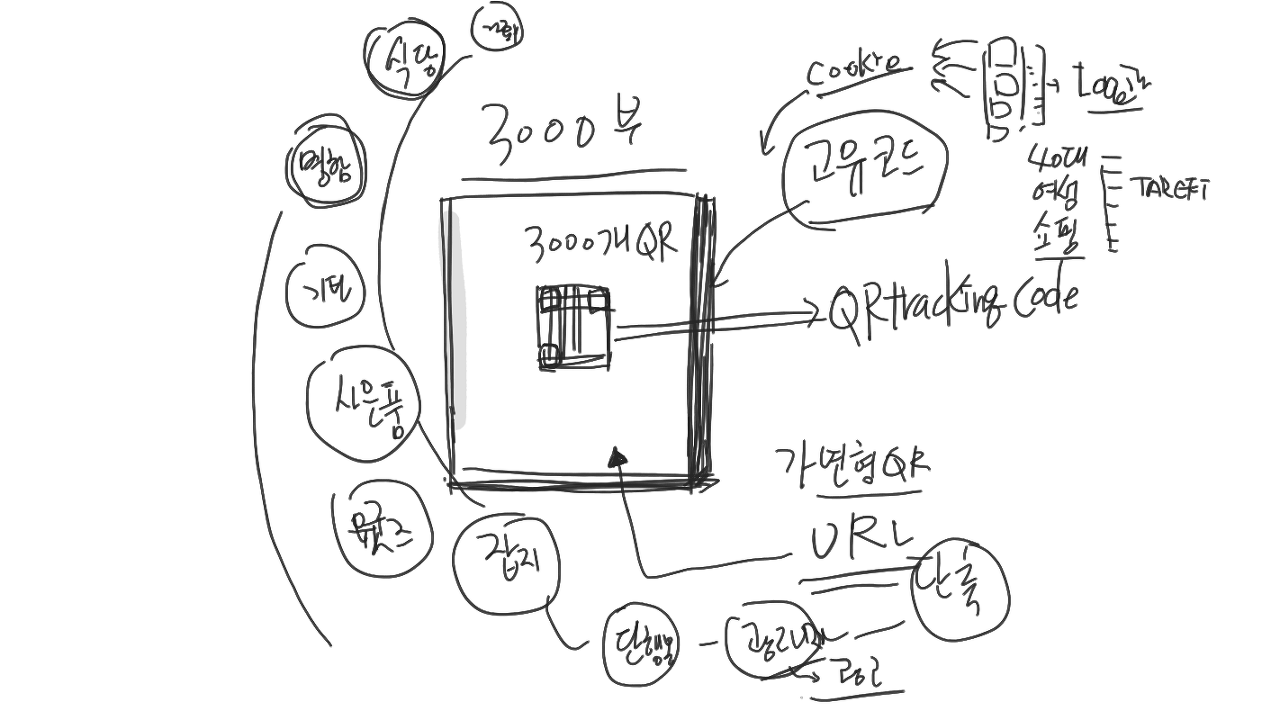 식당
명함
사은품
굿즈
잡지
단행본
3000부
3000개QR
Cookie
고유코드
40대
여성
쇼핑
TARGET
QRtracking Code
가변형QR
URL
단축
광고